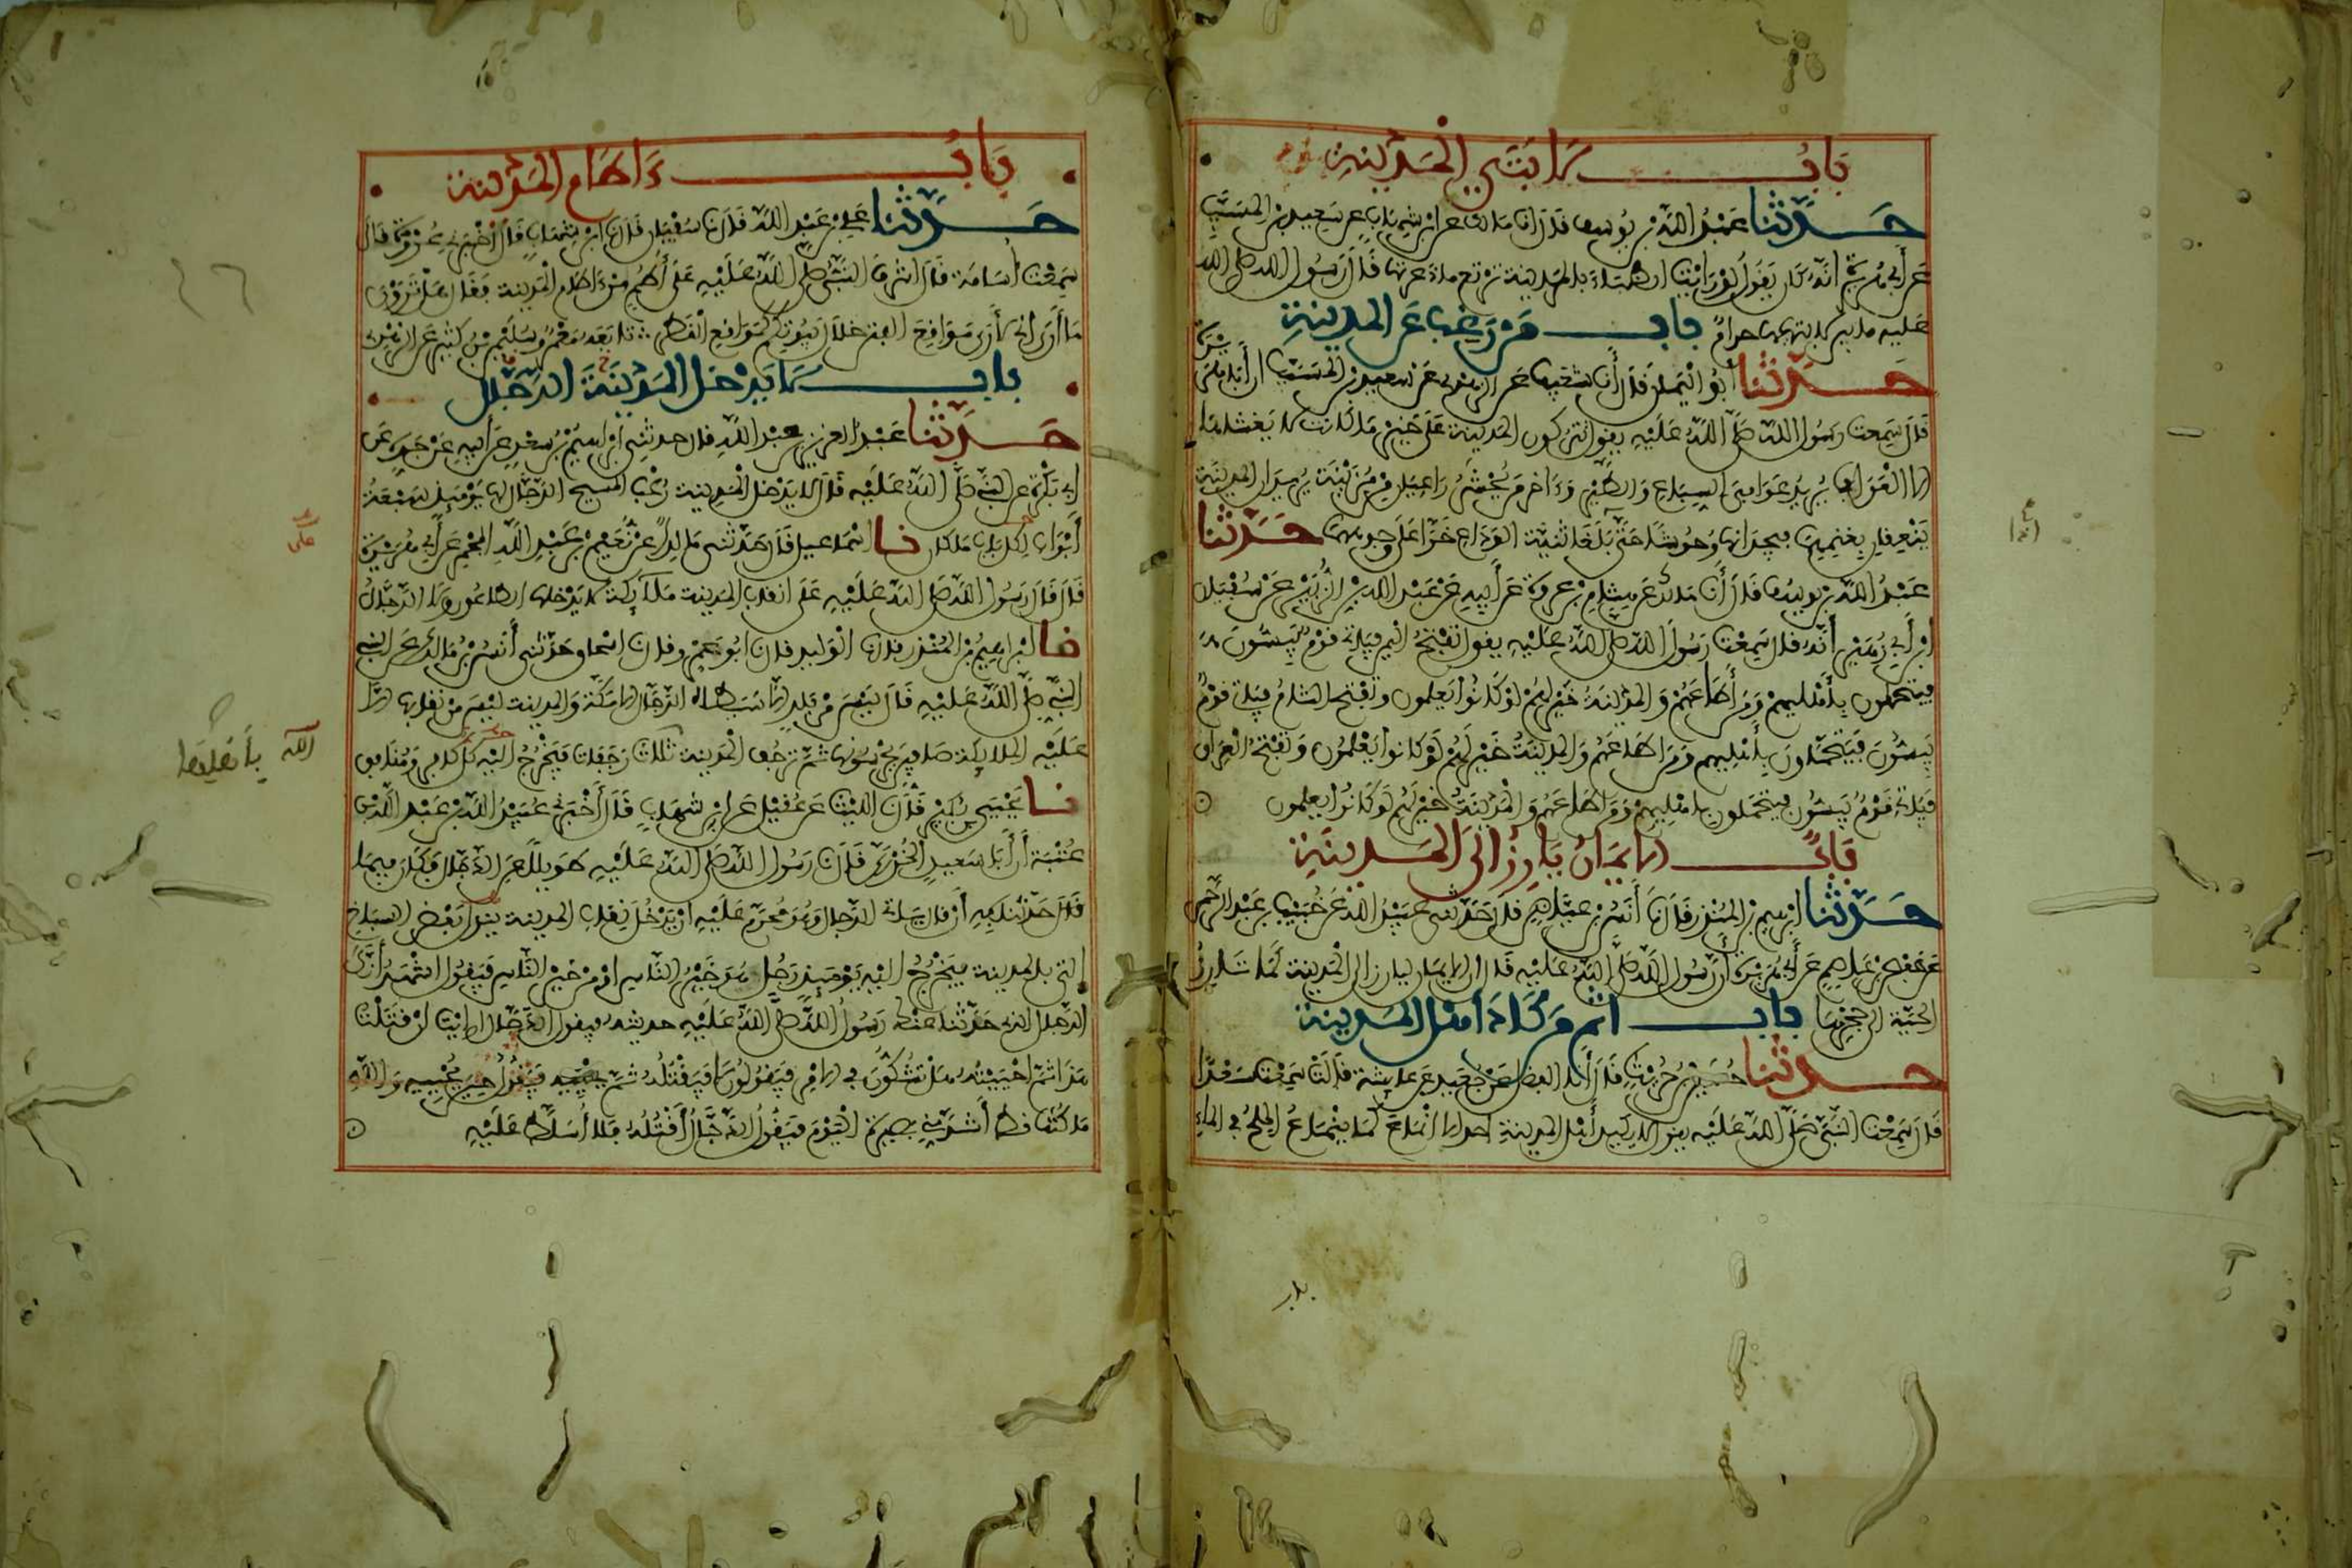 باب لابتي المدينة
حدثنا عبد الله بن يوسف قال انا مالك عن ابن شهاب عن سعيد بن المسيب
عن أبي هريرة أنه كان يقول لو رأيت الظباء بالمدينة ترتع ما ذعرتها قال رسول الله صلى الله
عليه ما بين لابتيها حرام باب من رغب عن المدينة
حدثنا أبو اليمان قال أنا شعيب عن الزهري عن سعيد بن المسيب أن أبا هريرة
قال سمعت رسول الله صلى الله عليه يقول تتركون المدينة على خير ما كانت لا يغشاها
إلا العواف يريد عوافي السباع والطير وءاخر من يحشر راعيان من مزينة يريدان المدينة
ينعقان بغنمهما فيجدانها وحوشا حتى بلغا ثنية الوداع خرا على وجوههما حدثنا
عبد الله بن يوسف قال أنا مالك عن هشام بن عروة عن أبيه عن عبد الله بن الزبير عن سفيان
ابن أبي زهير أنه قال سمعت رسول الله صلى الله عليه يقول تفتح اليمن فياتي قوم يبسون
فيتحملون بأهليهم ومن أطاعهم والمدينة خير لهم لو كانوا يعلمون وتفتح الشام فياتي قوم
يبسون فيتحملون بأهليهم ومن اطاعهم والمدينة خير لهم لو كانوا يعلمون وتفتح العراق
فياتي قوم يبسون فيتحملون باهليهم ومن اطاعهم والمدينة خير لهم لو كانوا يعلمون
باب الإيمان يارز إلى المدينة
حدثنا ابرهيم بن المنذر قال نا أنس بن عياض قال حدثني عبيد الله عن خبيب بن عبد الرحمن
عن حفص بن عاصم عن أبي هريرة أن رسول الله صلى الله عليه قال إن الإيمان ليارز إلى المدينة كما تارز
الحية إلى جحرها باب اثم من كاد أهل المدينة
حدثنا حسين بن حريث قال أنا الفضل عن جعيد عن عائشة قالت سمعت سعدا
قال سمعت النبي صلى الله عليه يقول لا يكيد أهل المدينة احد إلا انماع كما ينماع الملح في الماء
باب ءاطام المدينة
حدثنا علي بن عبد الله قال نا سفيان قال نا ابن شهاب قال أخبرني عروة قال
سمعت أسامة قال اشرف النبي صلى الله عليه على أطم من ءاطام المدينة فقال هل ترون
ما أرى إني لأرى مواقع الفتن خلال بيوتكم كمواقع القطر تابعه معمر وسليمن بن كثير عن الزهري
باب لا يدخل المدينة الدجال
حدثنا عبد العزيز بن عبد الله قال حدثني ابراهيم بن سعد عن أبيه عن جده عن
أبي بكرة عن النبي صلى الله عليه قال لا يدخل المدينة رعب المسيح الدجال لها يومئذ سبعة
أبواب لكل باب ملكان نا اسماعيل قال حدثني مالك عن نعيم بن عبد الله المجمر عن أبي هريرة
قال قال رسول الله صلى الله عليه على انقاب المدينة ملائكة لا يدخلها الطاعون ولا الدجال
نا ابراهيم بن المنذر قال نا الوليد قال نا ابو عمرو قال نا اسحاق حدثني أنس بن مالك عن النبي
النبي صلى الله عليه قال ليس من بلد إلا سيطاه الدجال إلا مكة والمدينة ليس من نقابها إلا
عليه الملائكة صافين يحرسونها ثم ترجف المدينة ثلاث رجفات فيخرج اليه كل كافر ومنافق
نا يحيى بن بكير قال نا الليث عن عقيل عن ابن شهاب قال أخبرني عبيد الله بن عبد الله بن
عتبة أن أبا سعيد الخدري قال نا رسول الله صلى الله عليه طويلا عن الدجال فكان فيما
قال حدثنا به أن قال ياتي الدجال وهو محرم عليه أن يدخل نقاب المدينة ينزل بعض السباخ
التي بالمدينة فيخرج اليه يومئذ رجل هو خير الناس او من خير الناس فيقول اشهد أنك
الدجال الذي حدثنا عنك رسول الله صلى الله عليه حديثه فيقول الدجال ارايت إن قتلت
هذا ثم احييته هل تشكون في الأمر فيقولون لا فيقتله ثم يحييه فيقول حين يحييه والله
ما كنت قط أشد مني بصيرة اليوم فيقول الدجال أقتله فلا أسلط عليه
الله بأنقابها
على
بدر